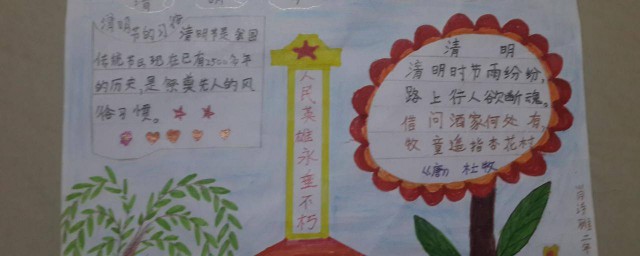 清明节的习俗 清明节是国
传统节日现在已有2500多年
的历史,是祭奠先人的风
俗习惯。
人民英雄永垂不朽
清 明
清明时节雨纷纷,
路上行人欲断魂。
借问酒家何处有,
牧童遥指杏花村
(唐) 杜牧